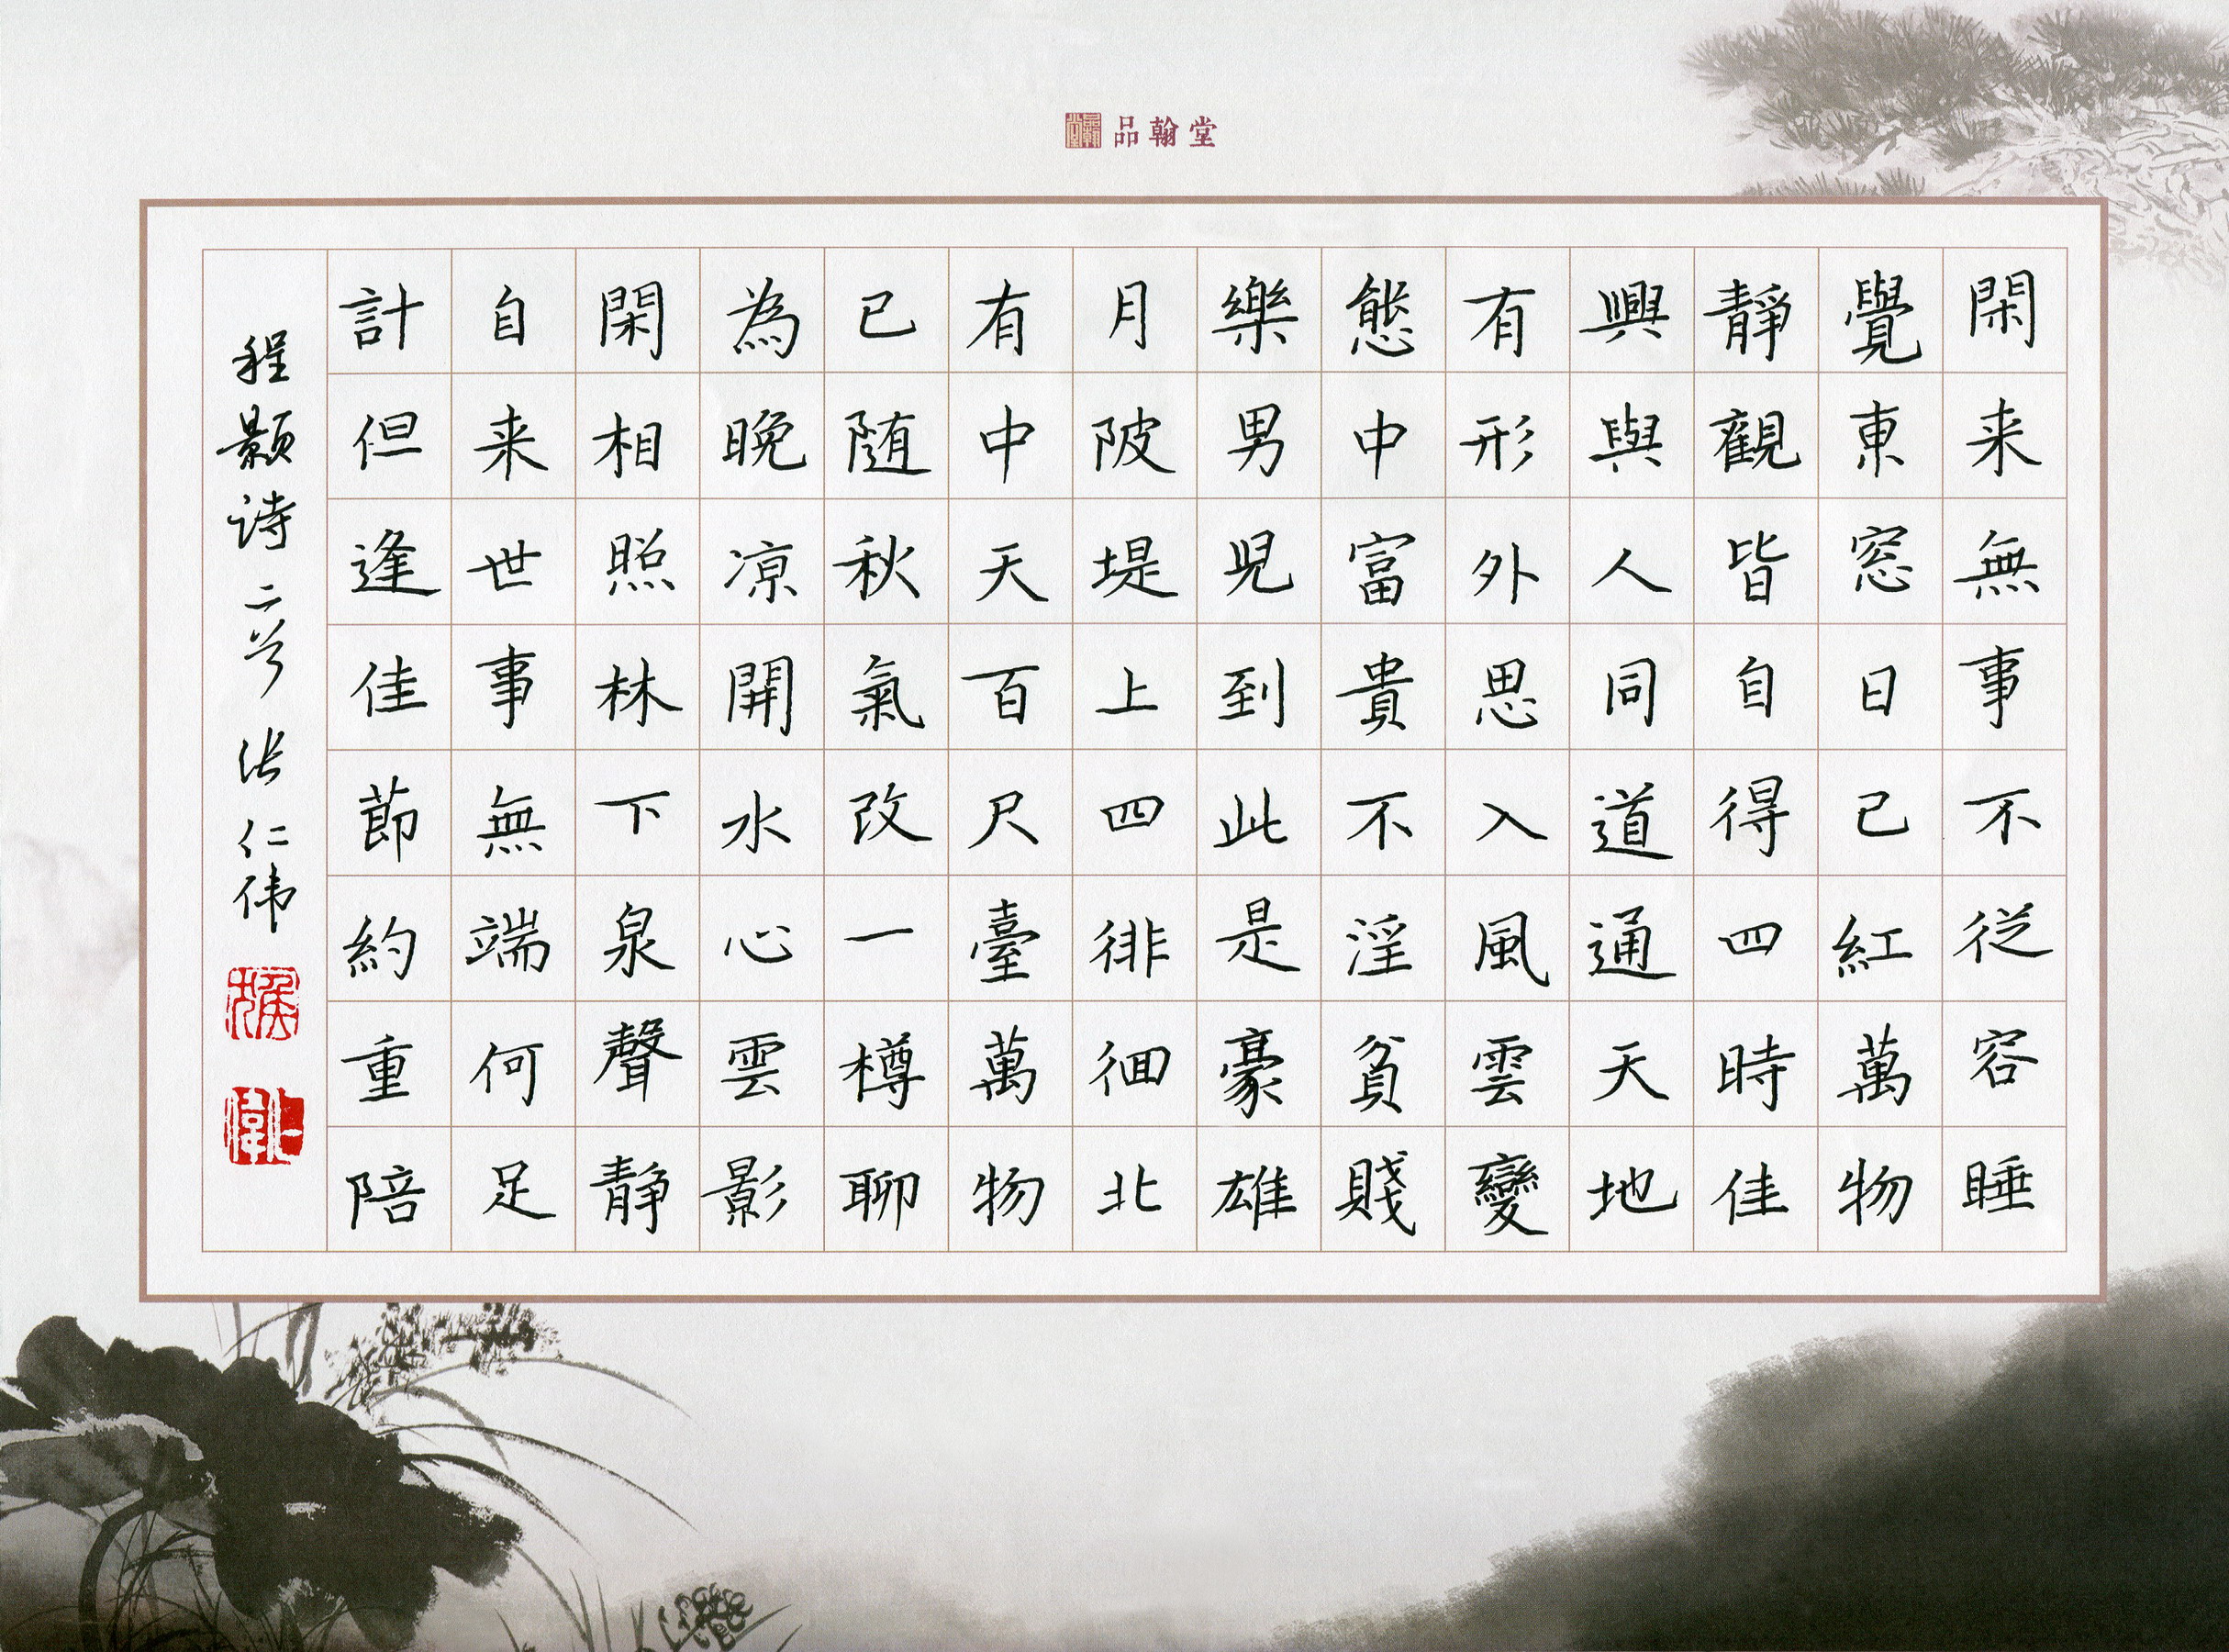 品翰堂
閑来無事不従容睡
覺東窓日已紅萬物
靜觀皆自得四時佳
興與人同道通天地
有形外思入風雲變
態中富貴不淫貧賤
樂男兒到此是豪雄
月陂堤上四徘徊北
有中天百尺臺萬物
已随秋氣改一樽聊
為晚凉開水心雲影
閑相照林下泉聲静
自来世事無端何足
計但逢佳節約重陪
程颢诗二首 张仁伟